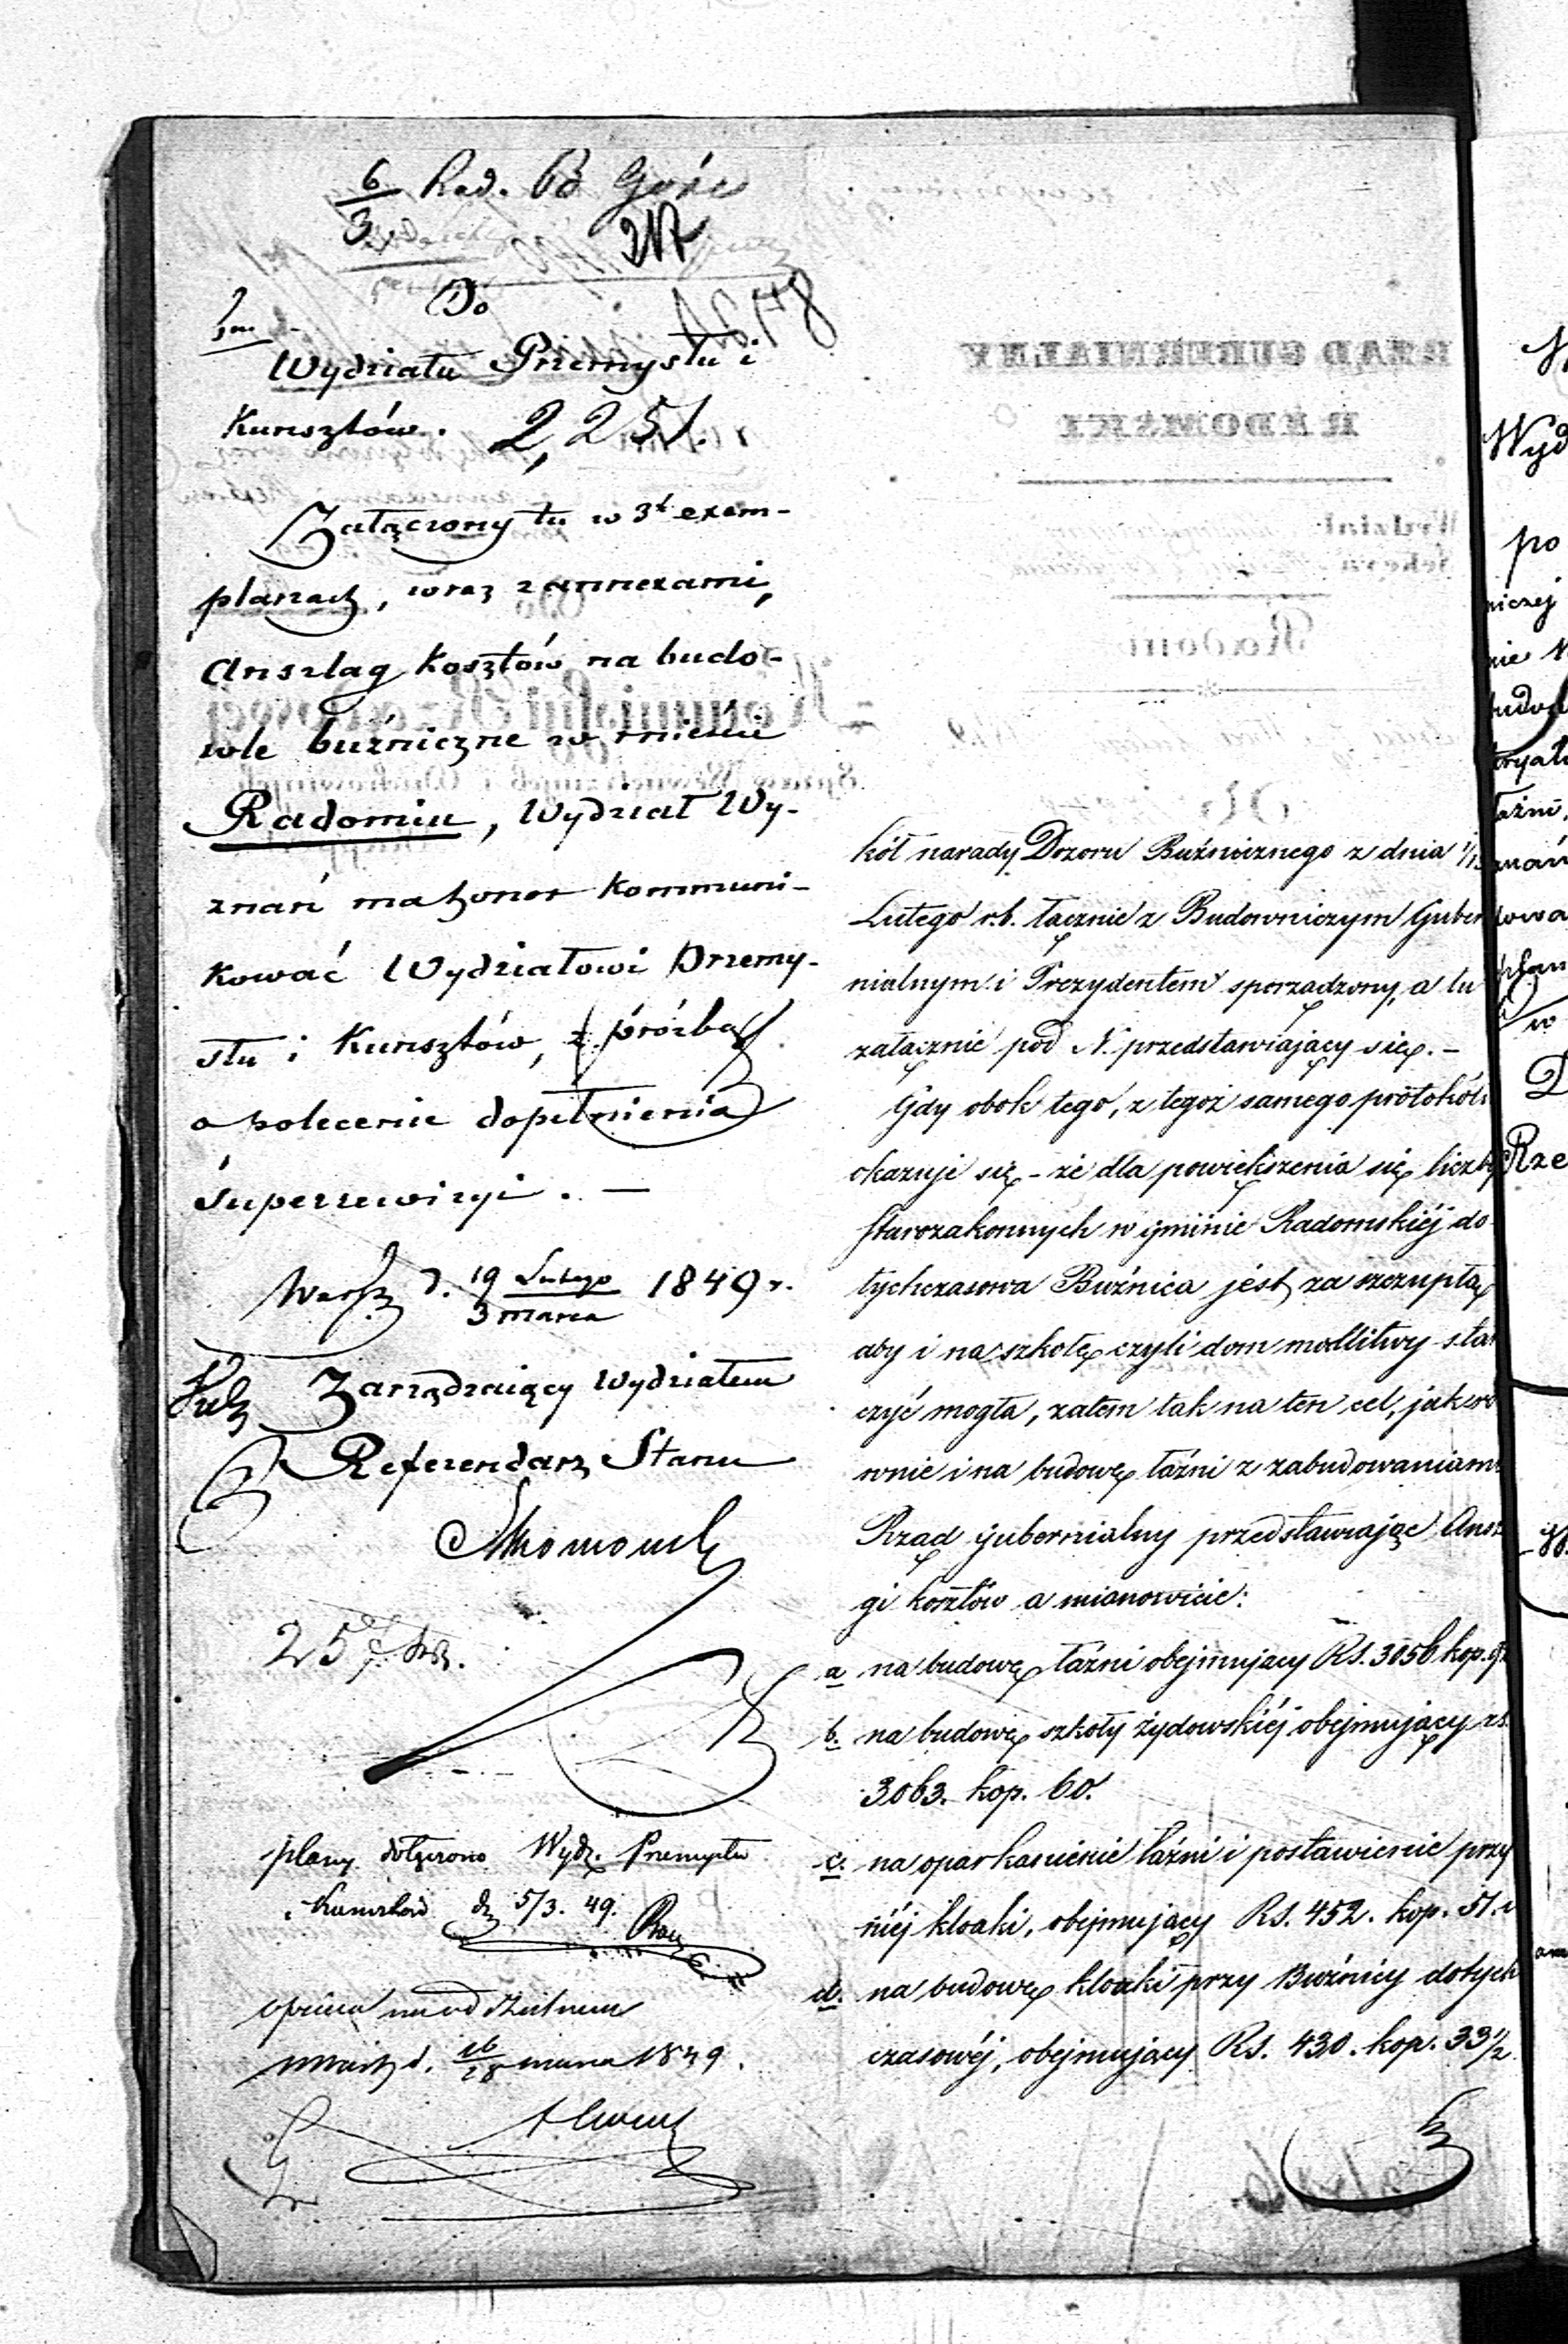 6/3 Rad. 68 Góra
217
Do
Wydziału Przemysłu i
Kunsztów. 2,251.
Załączony tu w 3ch exem-
plarzach, wraz z annexami,
Anszlag kosztów na budo-
wle buźniczne w mieście
Radomiu, Wydział Wy-
znań ma honor kommuni-
kować Wydziałowi Przemy-
słu i Kunsztów, z prośbą
o polecenie dopełnienia
superrewizyi. —
Warsz. d. 19 Lutego / 3 Marca 1849 r.
Zarządzaiący Wydziałem
Referendarz Stanu
plany dołączono Wydz. Przemysłu
i Kunsztów d. 5/3. 49.
d. 16/28 marca 1849.
kół narady Dozoru Buźnicznego z dnia
Lutego r.b. łącznie z Budowniczym Guber
nialnym i Prezydentem sporządzony, a tu
załącznie pod N. przedstawiający się. —
Gdy obok tego, z tegoż samego protokółu
okazuje się – że dla powiększenia się liczby
starozakonnych w gminie Radomskiéj do
tychczasowa Buźnica jest za szczupłą
aby i na szkołę czyli dom modlitwy star
czyć mogła, zatem tak na ten cel, jak ró
wnie i na budowę łaźni z zabudowaniami
Rząd gubernialny przedstawiając Ansz
gi kosztów a mianowicie:
a na budowę łaźni obejmujący Rs. 3056 kop.
b. na budowę szkoły żydowskiéj obejmujący rs.
3063. kop. 60.
c. na oparkanienie łaźni i postawienie przy
niéj kloaki, obejmujący Rs. 452. kop. 51. i
d. na budowę kloaki przy Buźnicy dotych
czasowéj, obejmujący Rs. 430. kop. 33 1/2